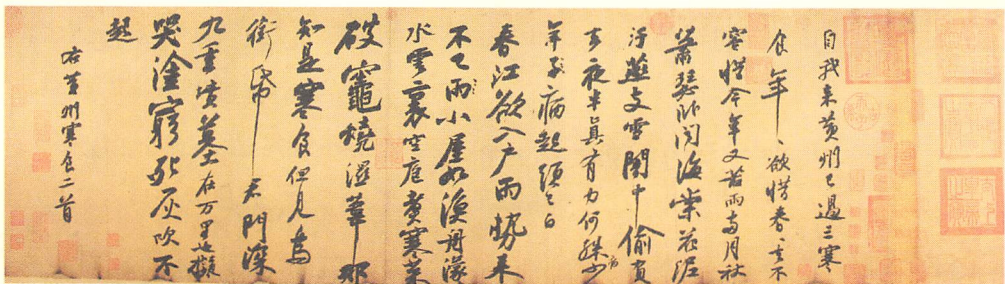 自我来黃州已過三寒
食年〻欲惜春〻去不
容惜今年又苦雨兩月秋
蕭瑟卧聞海棠花泥
汙燕支雪闇中偷負
去夜半真有力何殊少病
年子病起頭已白
春江欲入戶雨勢来
不已雨小屋如漁舟濛
水雲裏空庖煮寒菜
破竈燒濕葦那
知是寒食但見烏
銜帋君門深
九重墳墓在万里也擬
哭塗窮死灰吹不
起
右黃州寒食二首